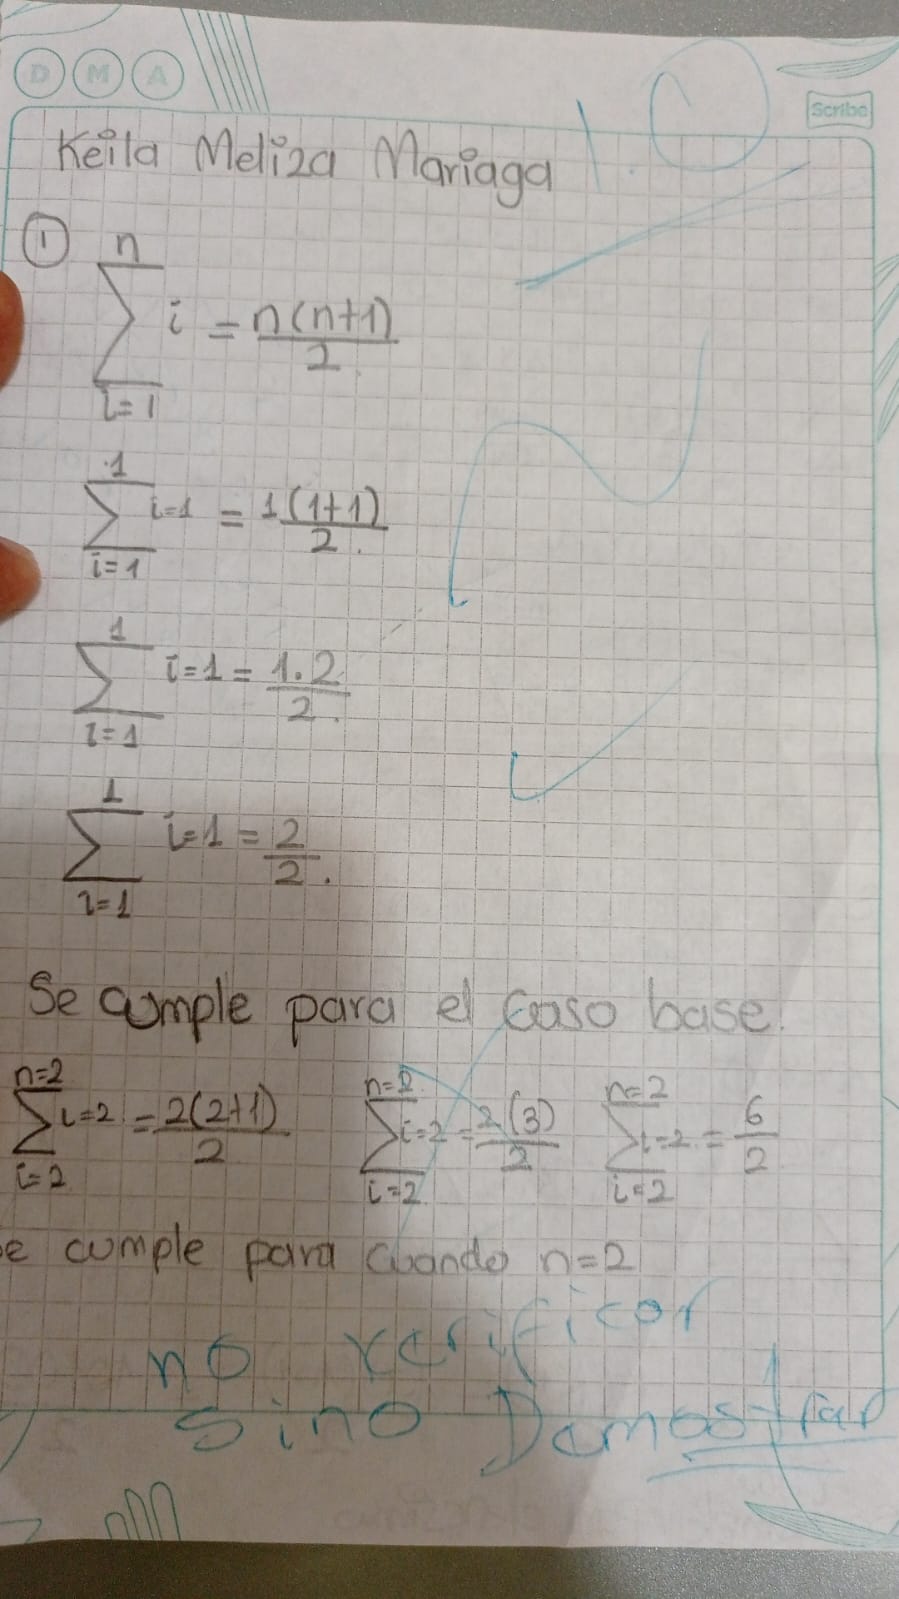 D M A
Scribe
1.0
Keila Meliza Mariaga
① n∑i=1 i = n(n+1)/2
1∑i=1 i=1 = 1(1+1)/2.
1∑i=1 i=1 = 1.2/2.
1∑i=1 i=1 = 2/2.
Se cumple para el caso base.
n=2∑i=2 i=2 = 2(2+1)/2 n=2∑i=2 i=2 = 2(3)/2 n=2∑i=2 i=2 = 6/2
e cumple para cuando n=2
no verificar
sino Demostrar